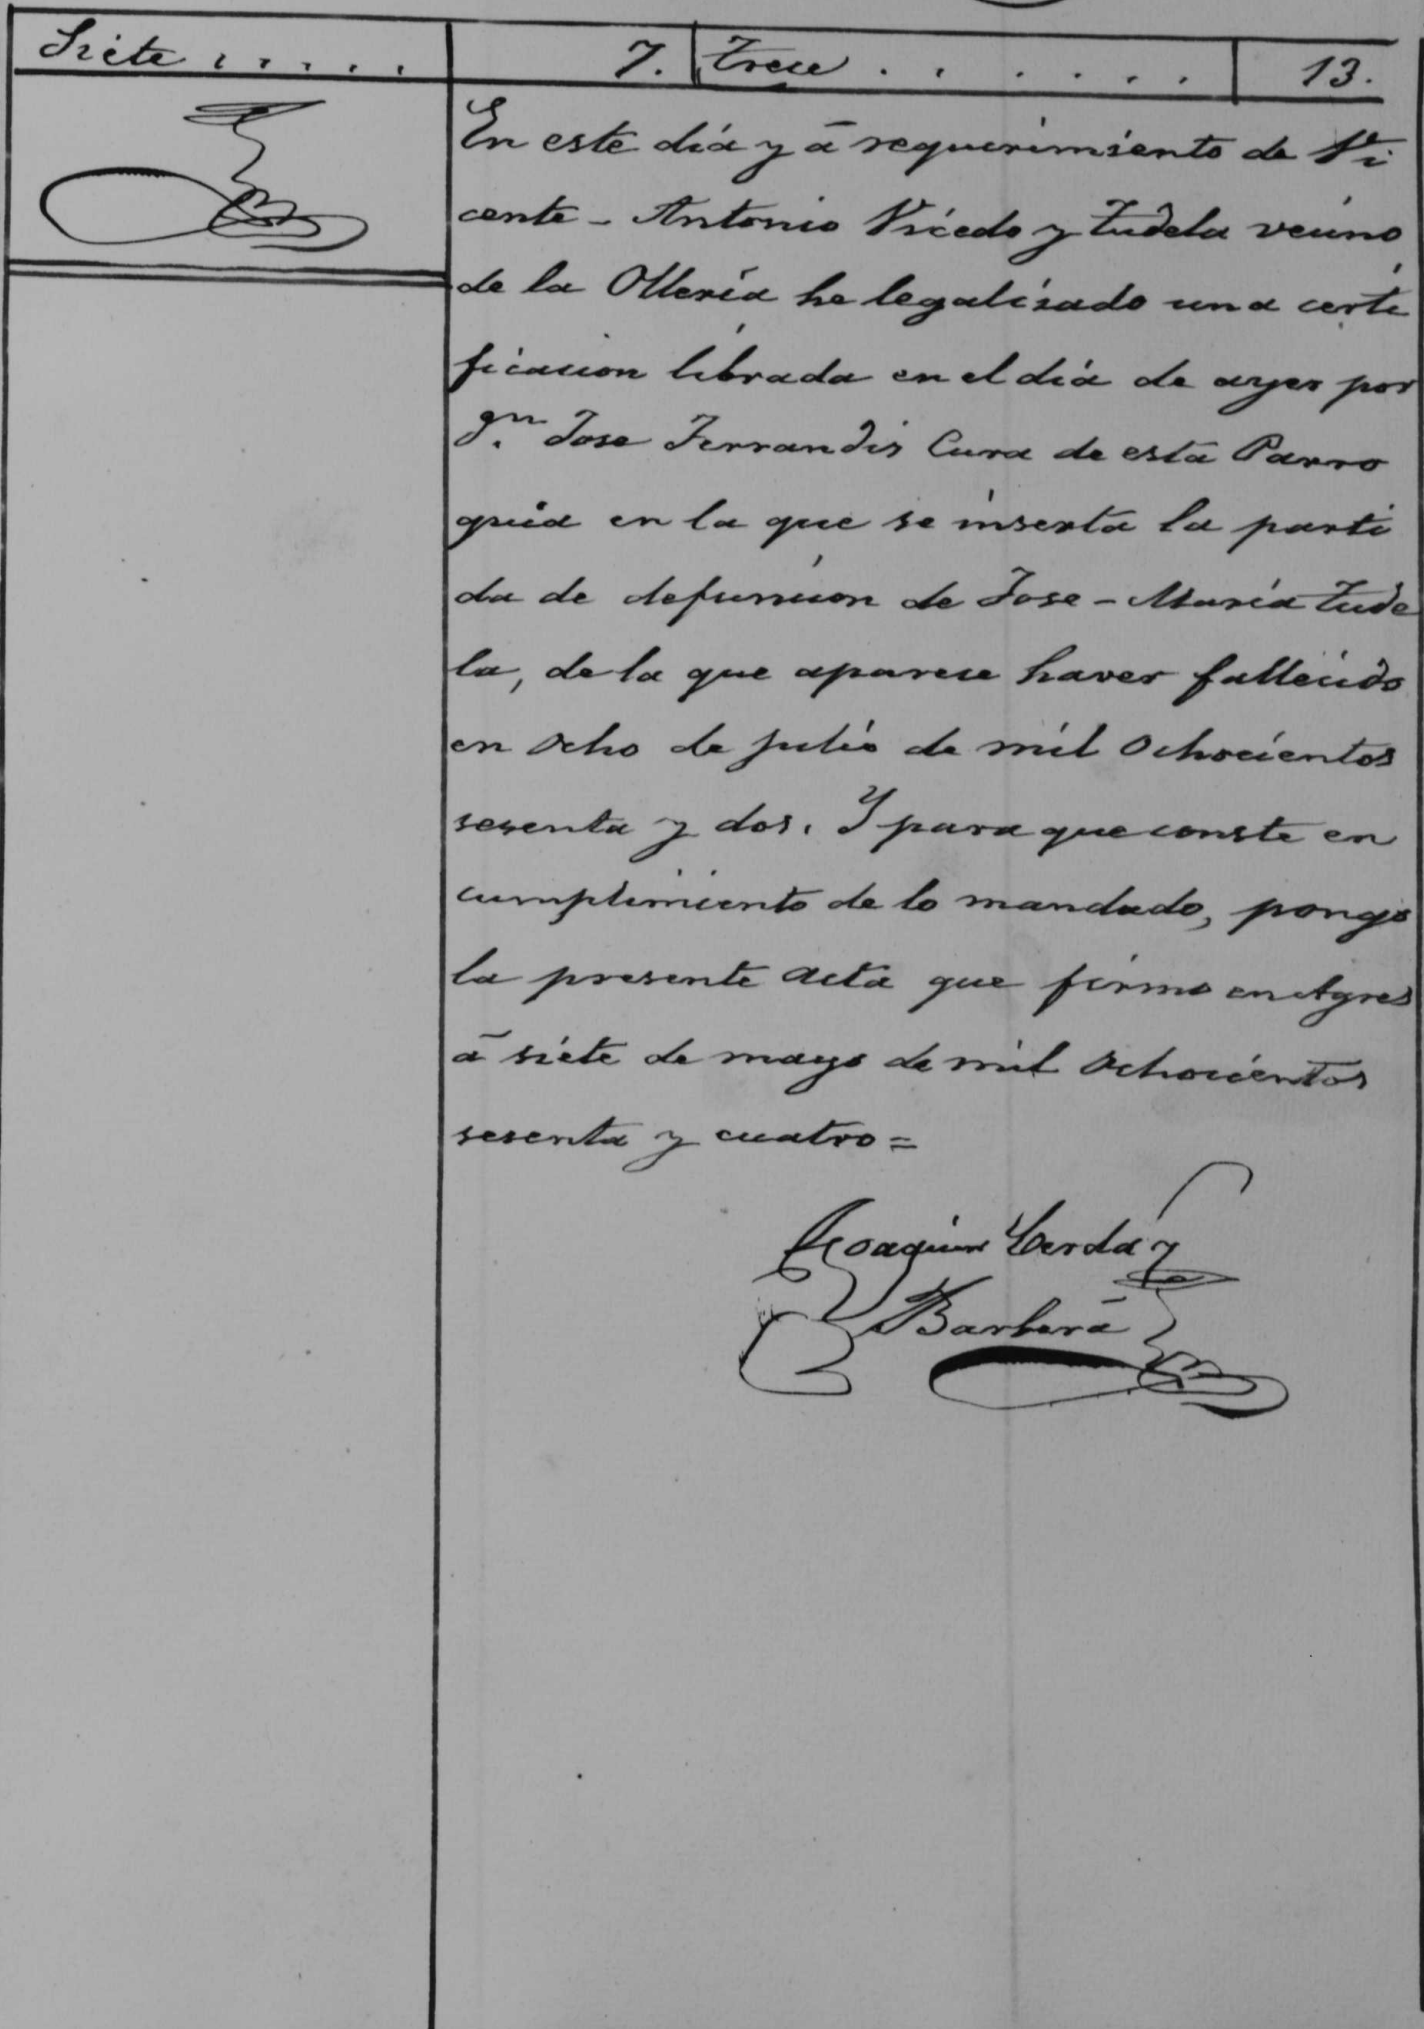 Siete . . . . . 7. Trece . . . . . . . 13.
En este día y á requerimiento de Vi
cente - Antonio Vicedo y Tudela vecino
de la Olleria he legalisado una certi
ficacion librada en el dia de ayer por
Dn. Jose Ferrandis Cura de esta Parro
quia en la que se inserta la parti
da de defuncion de Jose - Maria Tude
la, de la que aparece haver fallecido
en ocho de julio de mil ochocientos
sesenta y dos. Y para que conste en
cumplimiento de lo mandado, pongo
la presente acta que firmo en Agres
á siete de mayo de mil ochocientos
sesenta y cuatro =
Joaquin Cerdá y
Barberá